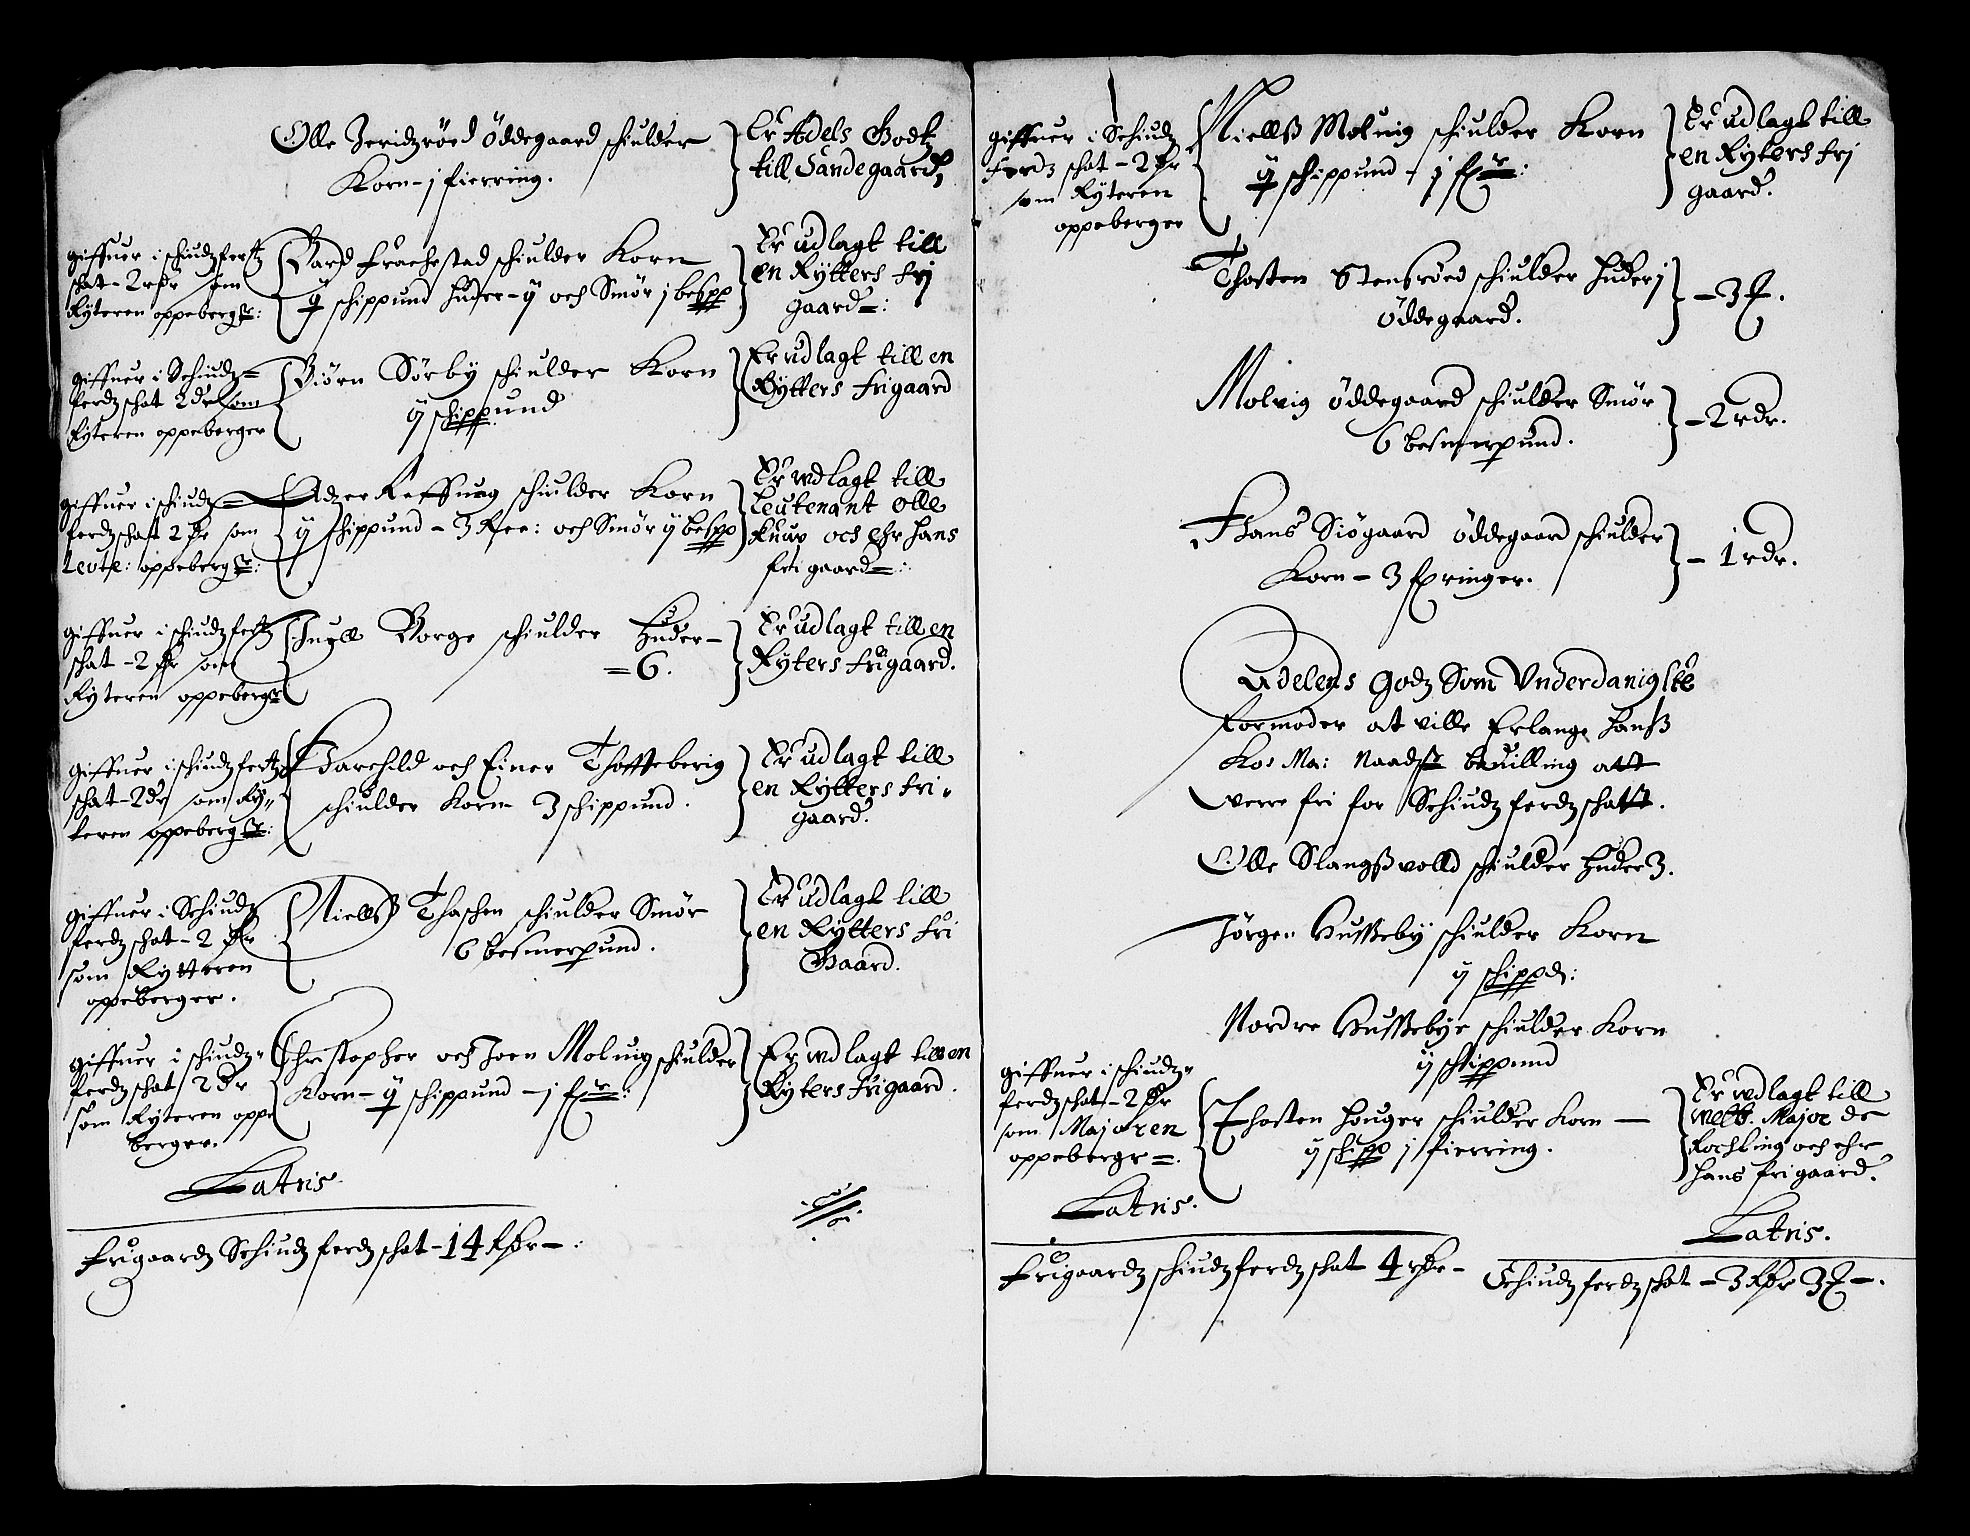 Olle Jeridzröed Öddegaard schiulder
Korn - j fierring.
Er Adels Godtz
till Sandegaard,
giffuer i schiudzfertz
schat - 2 rdr som
Ryteren oppebergr:
Baard Frachestad schiulder Korn
ÿ schippund huder - ÿ och Smör j bespp
Er udlagt till
en Rÿtters frj
gaard =:
giffuer i Schiudz=
ferdz schat 2 dr som
Ryteren oppeberger
Biörn Sörby schiulder Korn
ÿ schippund
Er udlagt till en
Rÿtters frigaard
giffuer i schiudz=
ferdz schat 2 dr som
Leute: oppebergr:
Adzer Reffnug schiulder Korn
ÿ schippund - 3 fier: och Smör ÿ bespp
Er wdlagt till
Leutenant Olle
Knur och ehr hans
fri gaard =:
giffuer i schiudz fertz
schat - 2 dr som
Ryteren oppebergr
Ingell Borge schiulder Huder -
= 6.
Er udlagt till en
Rÿters frigaard.
giffuer i schiudz fertz
schat - 2 dr som Ry„
teren oppebergr:
Harchild och Einer Thoffteberig
schiulder Korn 3 schippund.
Er udlagt till
en Rÿtters fri„
gaard.
giffuer i Schiudz
ferdz schat - 2 dr
som Rytteren
oppeberger.
Niellß Thaschen schiulder Smör
6 besmerpund.
Er udlagt till
en Rÿtters fri
Gaard.
giffuer i schiudz„
ferdz schat 2 dr
som Ryteren oppe
berger.
Christopher och Joen Moluig schiulder
Korn - ÿ schippund - j fr:
Er wdlagt till en
Rÿters frigaard.
Latris.
Frigaardz Schiudz ferdz schat - 14 Rdr -:
giffuer i Schiudz
ferdz schat - 2 dr
som Ryteren
oppeberger
Niellß Moluig schiulder Korn
ÿ schippund - j fr:
Er udlagt till
en Rÿters frj
gaard.
Thosten Stensröed schiulder huder j
Öddegaard.
- 3 ℔.
Molvig Öddegaard schiulder Smör
6 besmerpund.
- 2 rdr.
Hans Siögaard Öddegaard schiulder
Korn - 3 fieringer.
- 1 rdr.
Adelens Godz Som Vnderdanigste
formoder at ville Erlange hanß
Kos Ma: Naadst beuilling att
verre fri for Schiudz ferdz schatt.
Olle Slangßvolld schiulder huder 3.
Jörgen Hußeby schiulder Korn
ÿ schippd:
Nordre Hußebye schiulder Korn
ÿ schippund
giffuer i schiudz„
ferdz schat - 2 dr
som Majoren
oppebergr =.
Thosten Houger schiulder Korn -
ÿ schipp j fierring.
Er wdlagt till
Welb. Major de
Rochling och ehr
hans frigaard.
Latris.
Latris.
Frigaardz schiudz ferdz schat 4 rdr -
Schiudz ferdz schat - 3 Rdr 3 ℔ -.